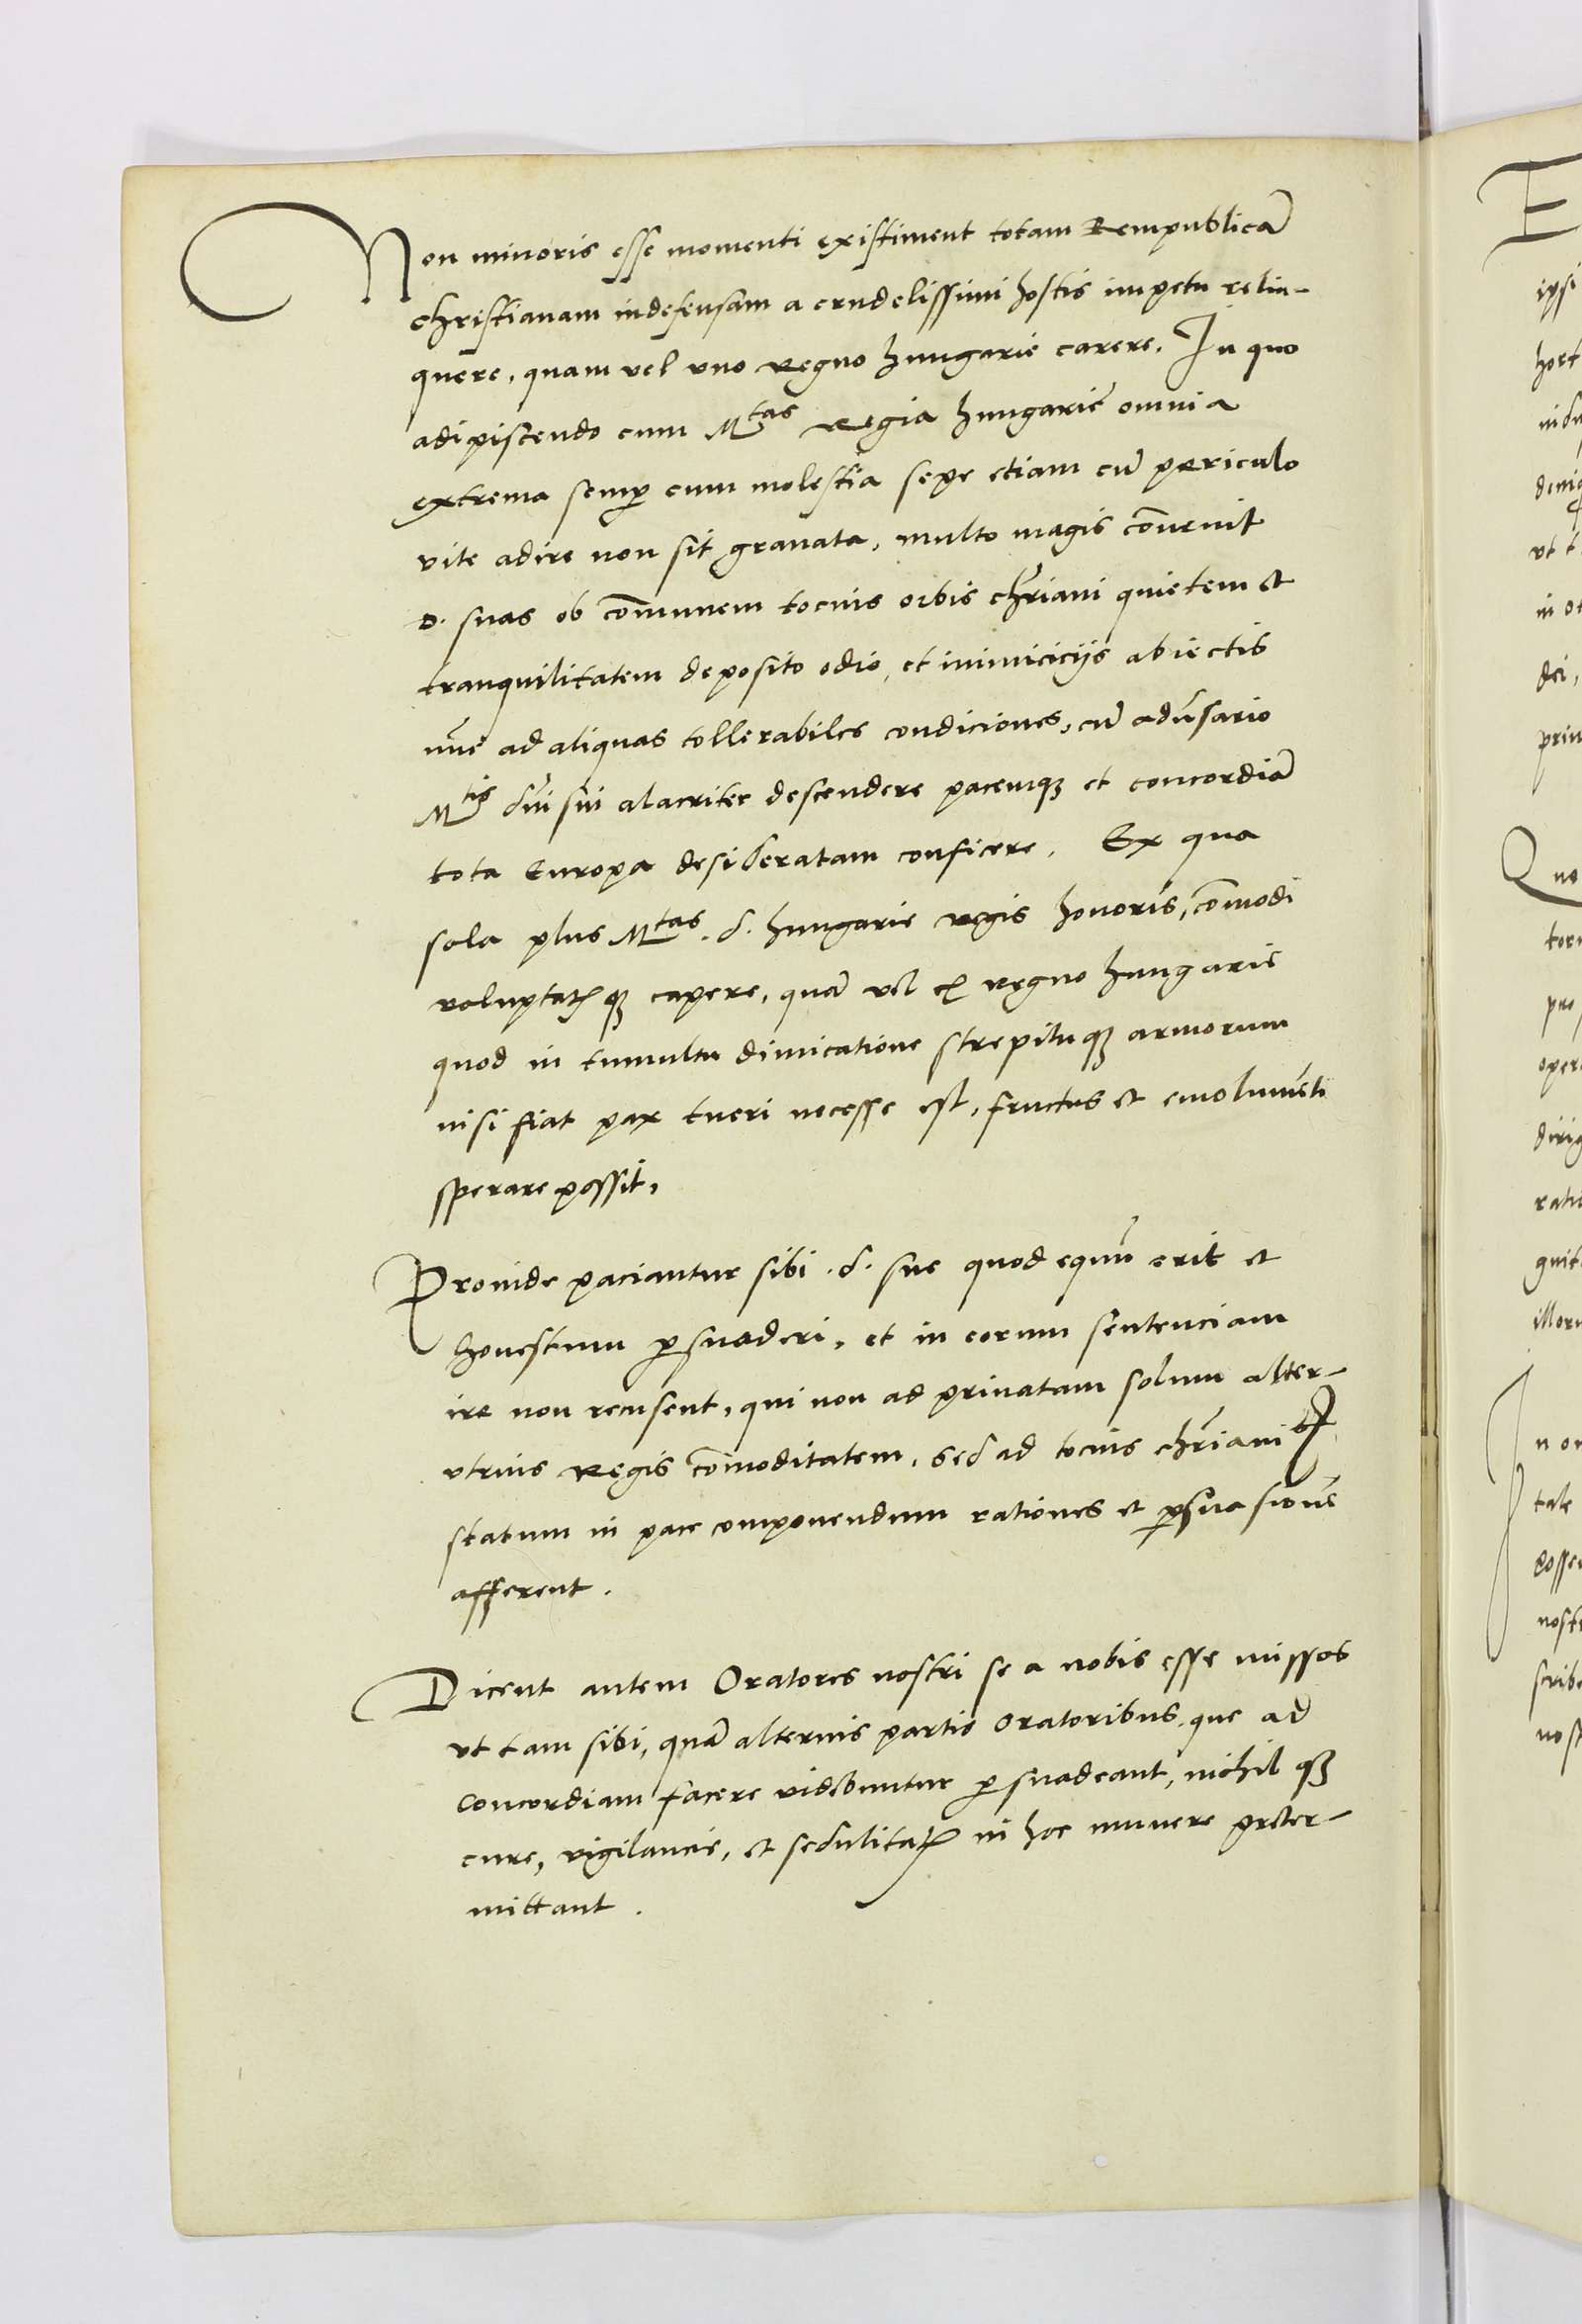 Non minoris esse momenti existiment totam Rempublicā
christianam indefensam a crudelissimi hostis impetu relin-
quere, quam vel vno Regno hungarie carere. In quo
adipiscendo cum Mtas Regia hungarie omnia
extrema semp cum molestia sepe etiam cū periculo
vite adire non sit grauata, multo magis cōuenit
D. suas ob cōmunem tocius orbis chriani quietem et
tranquilitatem deposito odio, et inimicicijs abiectis
nūc ad aliquas tollerabiles condiciones, cū aduersario
Mtis dni sui alacriter descendere pacemqꝫ et concordiā
tota Europa desideratam conficere. Ex qua
sola plus Mtas. d. hungarie regis honoris, cōmodi
voluptatisqꝫ capere, quā vel ex regno hungarie
quod in tumultu dimicatione strepituqꝫ armorum
nisi fiat pax tueri necesse est, fructus et emolumēti
sperare possit,
Prouide paciantur sibi .d. sue quod equū erit et
honestum psuaderi, et in eorum sentenciam
ire non recusent, qui non ad priuatam solum alter-
vtrius Regis cōmoditatem, sed ad tocius chriani
statum in pace componendum rationes et psuasiones
afferent.
Dicent autem Oratores nostri se a nobis esse missos
vt tam sibi, quā alterius partis oratoribus, que ad
concordiam facere videbuntur psuadeant, nihil qꝫ
cure, vigilancie, et sedulitatis in hoc munere preter-
mittant.
E
ipsi
hort
vt t
in o
dei,
prin
Quo
pro
oper
dirig
ratio
illoru
In o
tale
posse
nost
scrib
nost